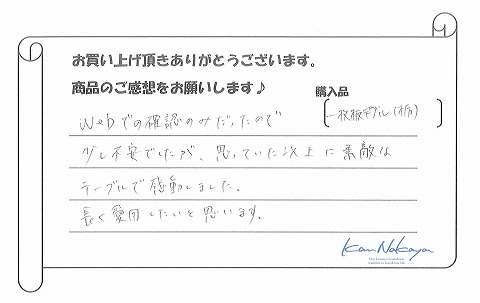 お買い上げ頂きありがとうございます。
商品のご感想をお願いします♪
購入品
一枚板テーブル(栃)
Webでの確認のみだったので
少し不安でしたが、思っていた以上に素敵な
テーブルで感動しました。
長く愛用したいと思います。
Kan Nakaya